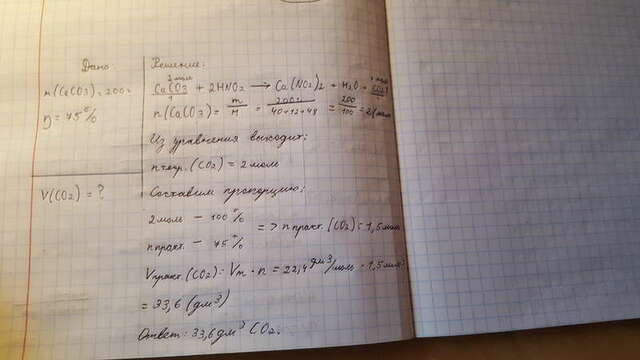 Дано
m(CaCO3) = 200г
η = 75%
V(CO2) = ?
Решение:
CaCO3 + 2HNO3 → Ca(NO3)2 + H2O + CO2↑
n(CaCO3) = m/M = 200г/40+12+48 = 200/100 = 2(моль)
Из уравнения выходит:
nтеор.(CO2) = 2 моль
Составим пропорцию:
2 моль – 100%
nпракт. – 75% => nпракт.(CO2) = 1,5 моль
Vпракт(CO2) = Vn · n = 22,4 дм3/моль · 1,5 моль =
= 33,6 (дм3)
Ответ: 33,6 дм3 CO2.